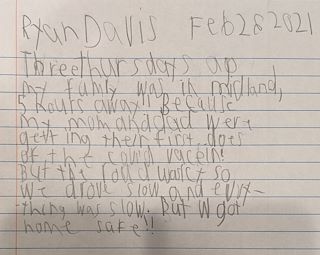 Ryan Davis Feb 28 2021
Three thursdays ago
my family was in midland,
5 hours away. Because
my mom and dad were
getting their first does
of the covid vacein!
But the road was icy so
we drove slow and evry-
thing was slow. But w got
home safe!!